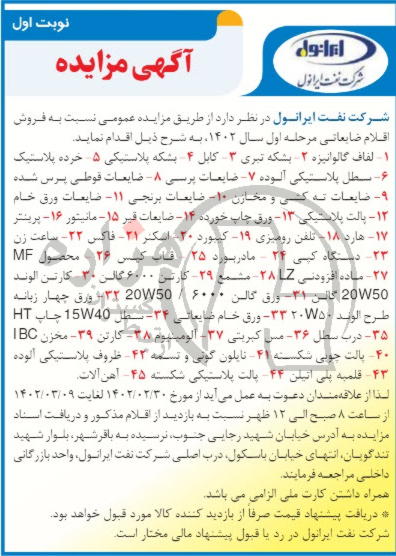 نوبت اول
ایرانول
شرکت نفت ایرانول
آگهی مزایده
شرکت نفت ایرانول در نظر دارد از طریق مزایده عمومی نسبت به فروش
اقلام ضایعاتی مرحله اول سال ۱۴۰۲، به شرح ذیل اقدام نماید.
۱- لفاف گالوانیزه ۲- بشکه تبری ۳- کابل ۴- بشکه پلاستیکی ۵- خرده پلاستیک
۶- سطل پلاستیکی آلوده ۷- ضایعات پرسی ۸- ضایعات قوطی پرس شده
۹- ضایعات ته کشی و مخازن ۱۰- ضایعات برنجی ۱۱- ضایعات ورق خام
۱۲- پالت پلاستیکی ۱۳- ورق چاپ خورده ۱۴- ضایعات قیر ۱۵- مانیتور ۱۶- پرینتر
۱۷- هارد ۱۸- تلفن رومیزی ۱۹- کیبورد ۲۰- اسکنر ۲۱- فاکس ۲۲- ساعت زن
۲۳- دستگاه کپی ۲۴- مادربورد ۲۵- قاب کیس ۲۶- محصول MF
۲۷- ماده افزودنی LZ ۲۸- مشمع ۲۹- کارتن ۶۰۰۰ گالن ۳۰- کارتن الوند
20W50 گالن ۳۱- ورق گالن ۶۰۰۰ / 20W50 ۳۲- ورق چهار زبانه
طرح الوند ۲۰W۵۰ ۳۳- ورق خام ضایعاتی ۳۴- سطل 15W40 چاپ HT
۳۵- درب سطل ۳۶- مس کبریتی ۳۷- آلومینیوم ۳۸- کارتن ۳۹- مخزن IBC
۴۰- پالت چوبی شکسته ۴۱- نایلون گونی و تسمه ۴۲- ظروف پلاستیکی آلوده
۴۳- قلمبه پلی اتیلن ۴۴- پالت پلاستیکی شکسته ۴۵- آهن‌آلات.
لذا از علاقه‌مندان دعوت به عمل می‌آید از مورخ ۱۴۰۲/۰۲/۳۰ لغایت ۱۴۰۲/۰۳/۰۹
از ساعت ۸ صبح الی ۱۲ ظهر نسبت به بازدید از اقلام مذکور و دریافت اسناد
مزایده به آدرس خیابان شهید رجایی جنوب، نرسیده به باقرشهر، بلوار شهید
تندگویان، انتهای خیابان باسکول، درب اصلی شرکت نفت ایرانول، واحد بازرگانی
داخلی مراجعه فرمایند.
همراه داشتن کارت ملی الزامی می باشد.
* دریافت پیشنهاد قیمت صرفاً از بازدید کننده کالا مورد قبول خواهد بود.
شرکت نفت ایرانول در رد یا قبول پیشنهاد مالی مختار است.